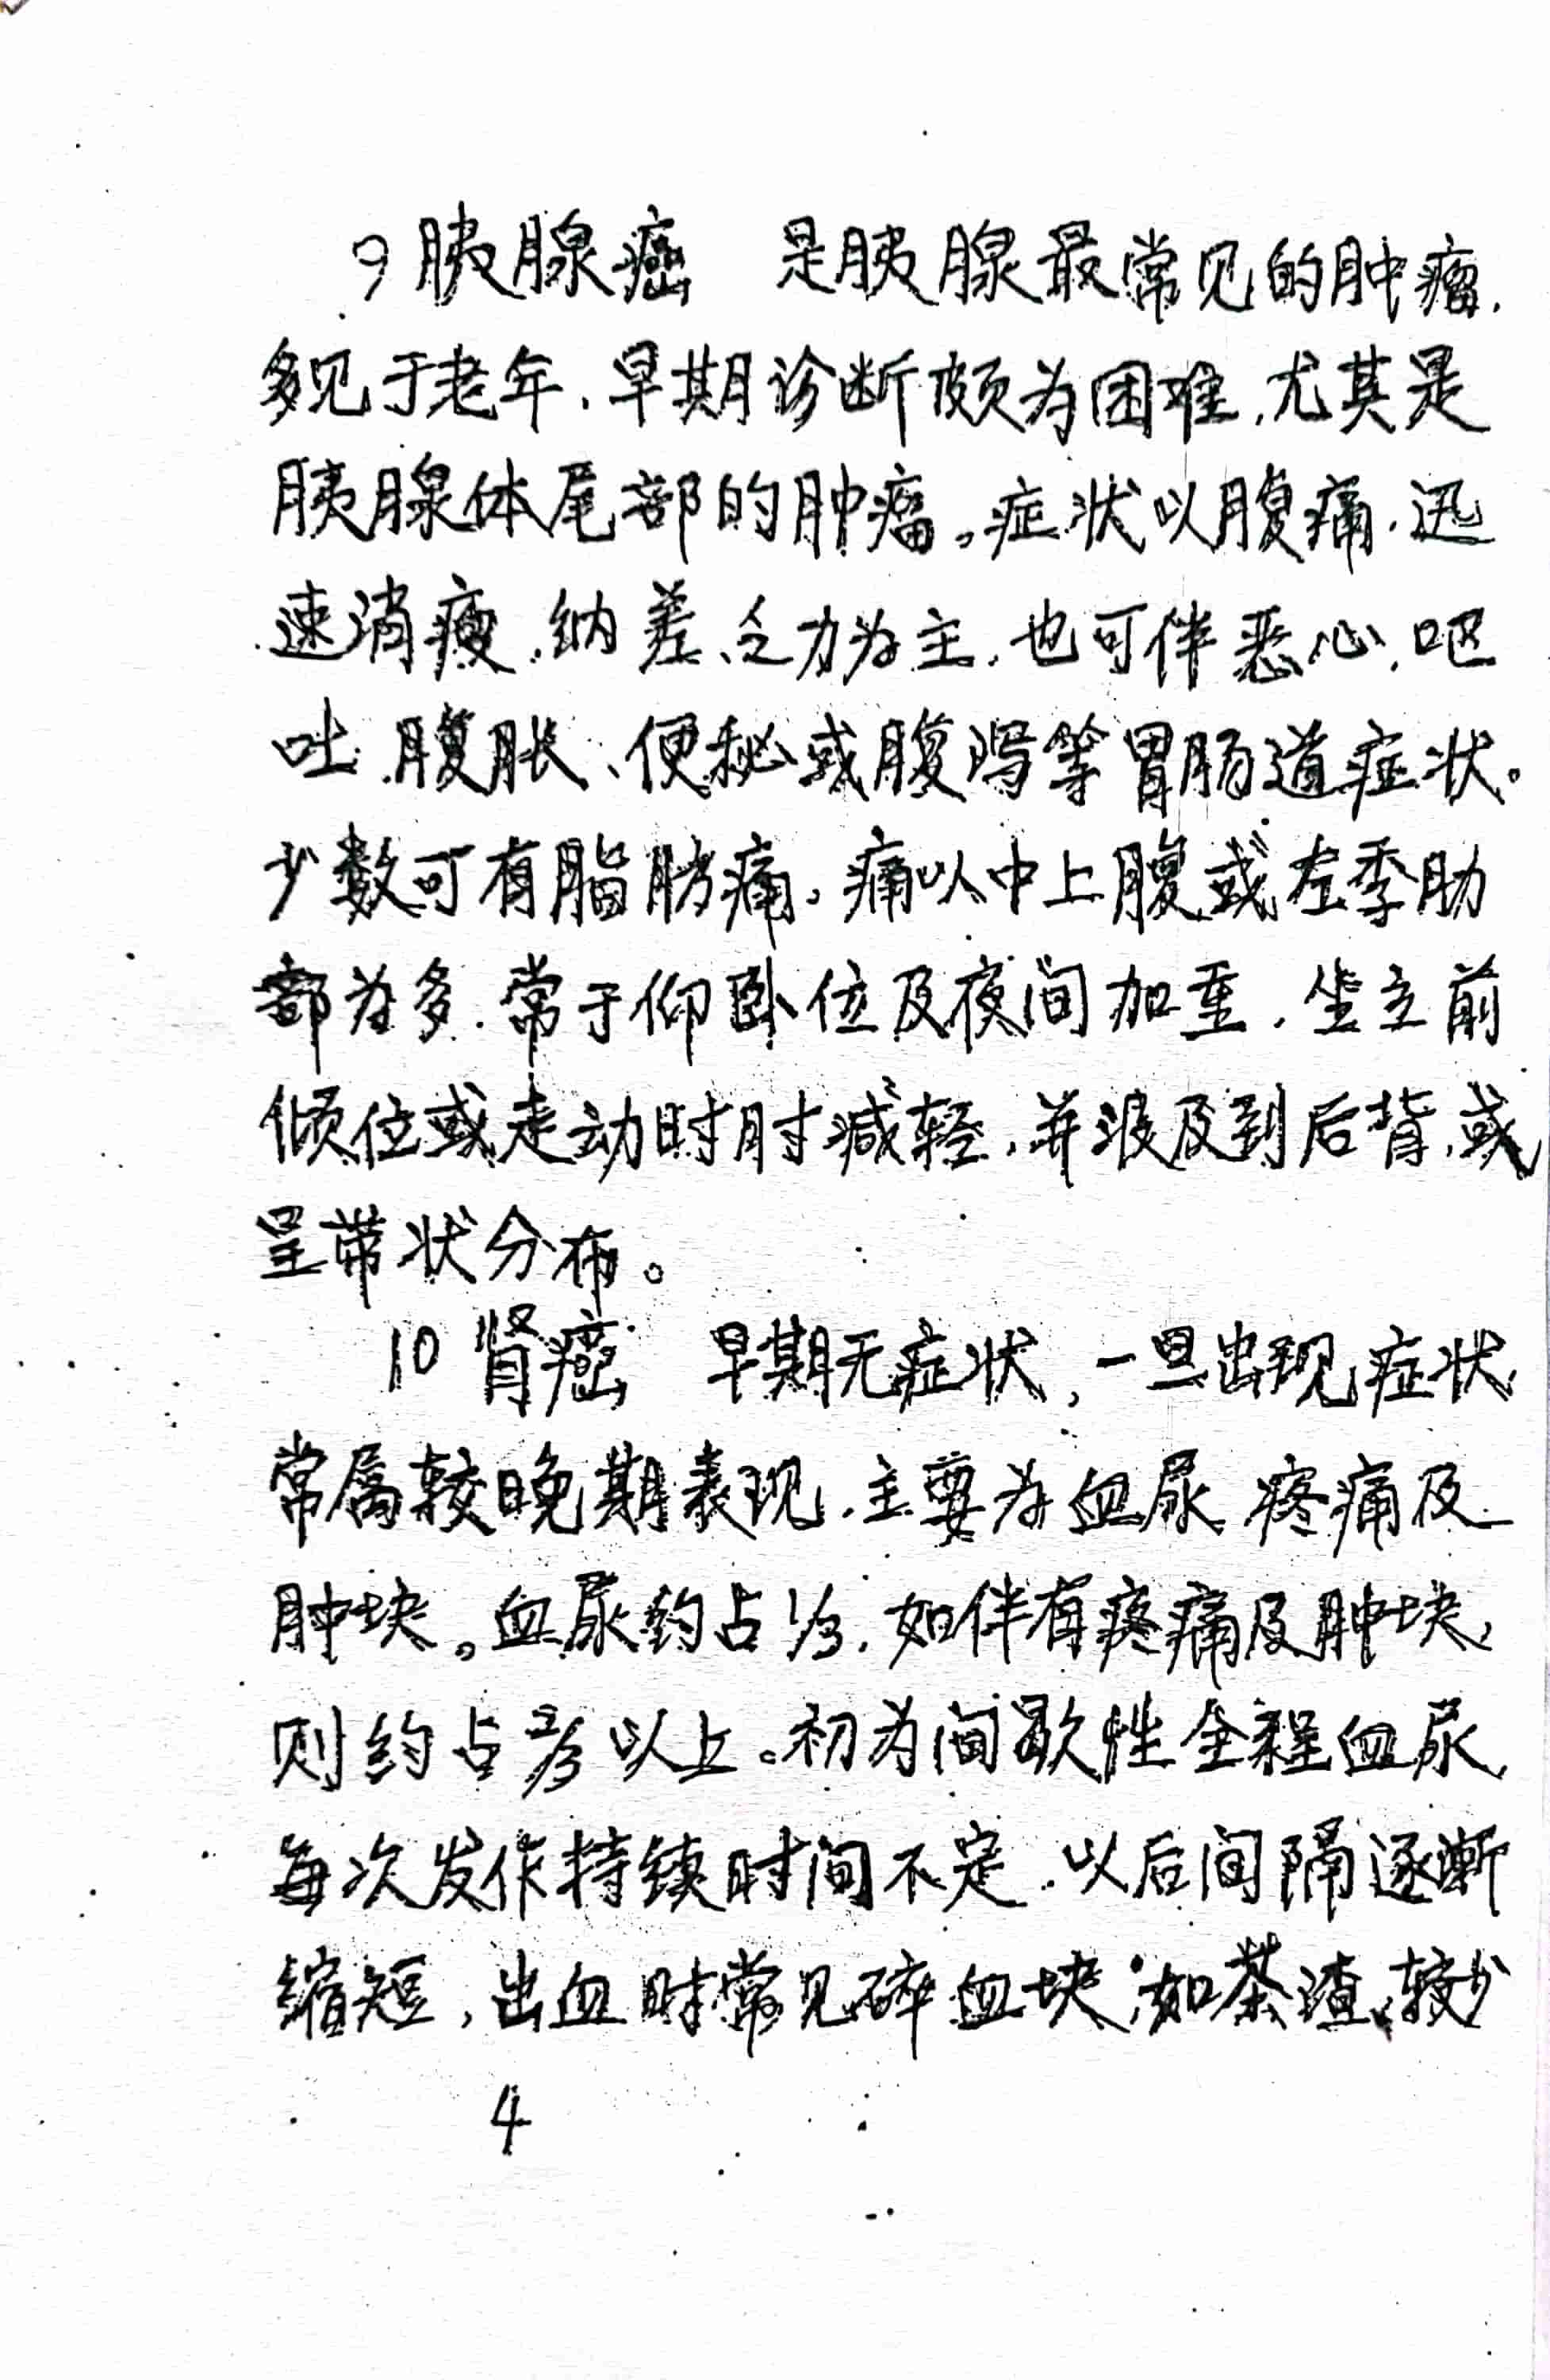 9 胰腺癌 是胰腺最常见的肿瘤,
多见于老年,早期诊断颇为困难,尤其是
胰腺体尾部的肿瘤。症状以腹痛,迅
速消瘦,纳差、乏力为主,也可伴恶心,呕
吐,腹胀、便秘或腹泻等胃肠道症状。
少数可有脂肪痛,痛以中上腹或左季肋
部为多,常于仰卧位及夜间加重,坐立前
倾位或走动时时减轻,并波及到后背,或
呈带状分布。
10 肾癌 早期无症状,一旦出现症状,
常属较晚期表现,主要为血尿 疼痛及
肿块。血尿约占1/3,如伴有疼痛及肿块,
则约占2/3以上。初为间歇性全程血尿,
每次发作持续时间不定,以后间隔逐渐
缩短,出血时常见碎血块,如茶渣,较少
4